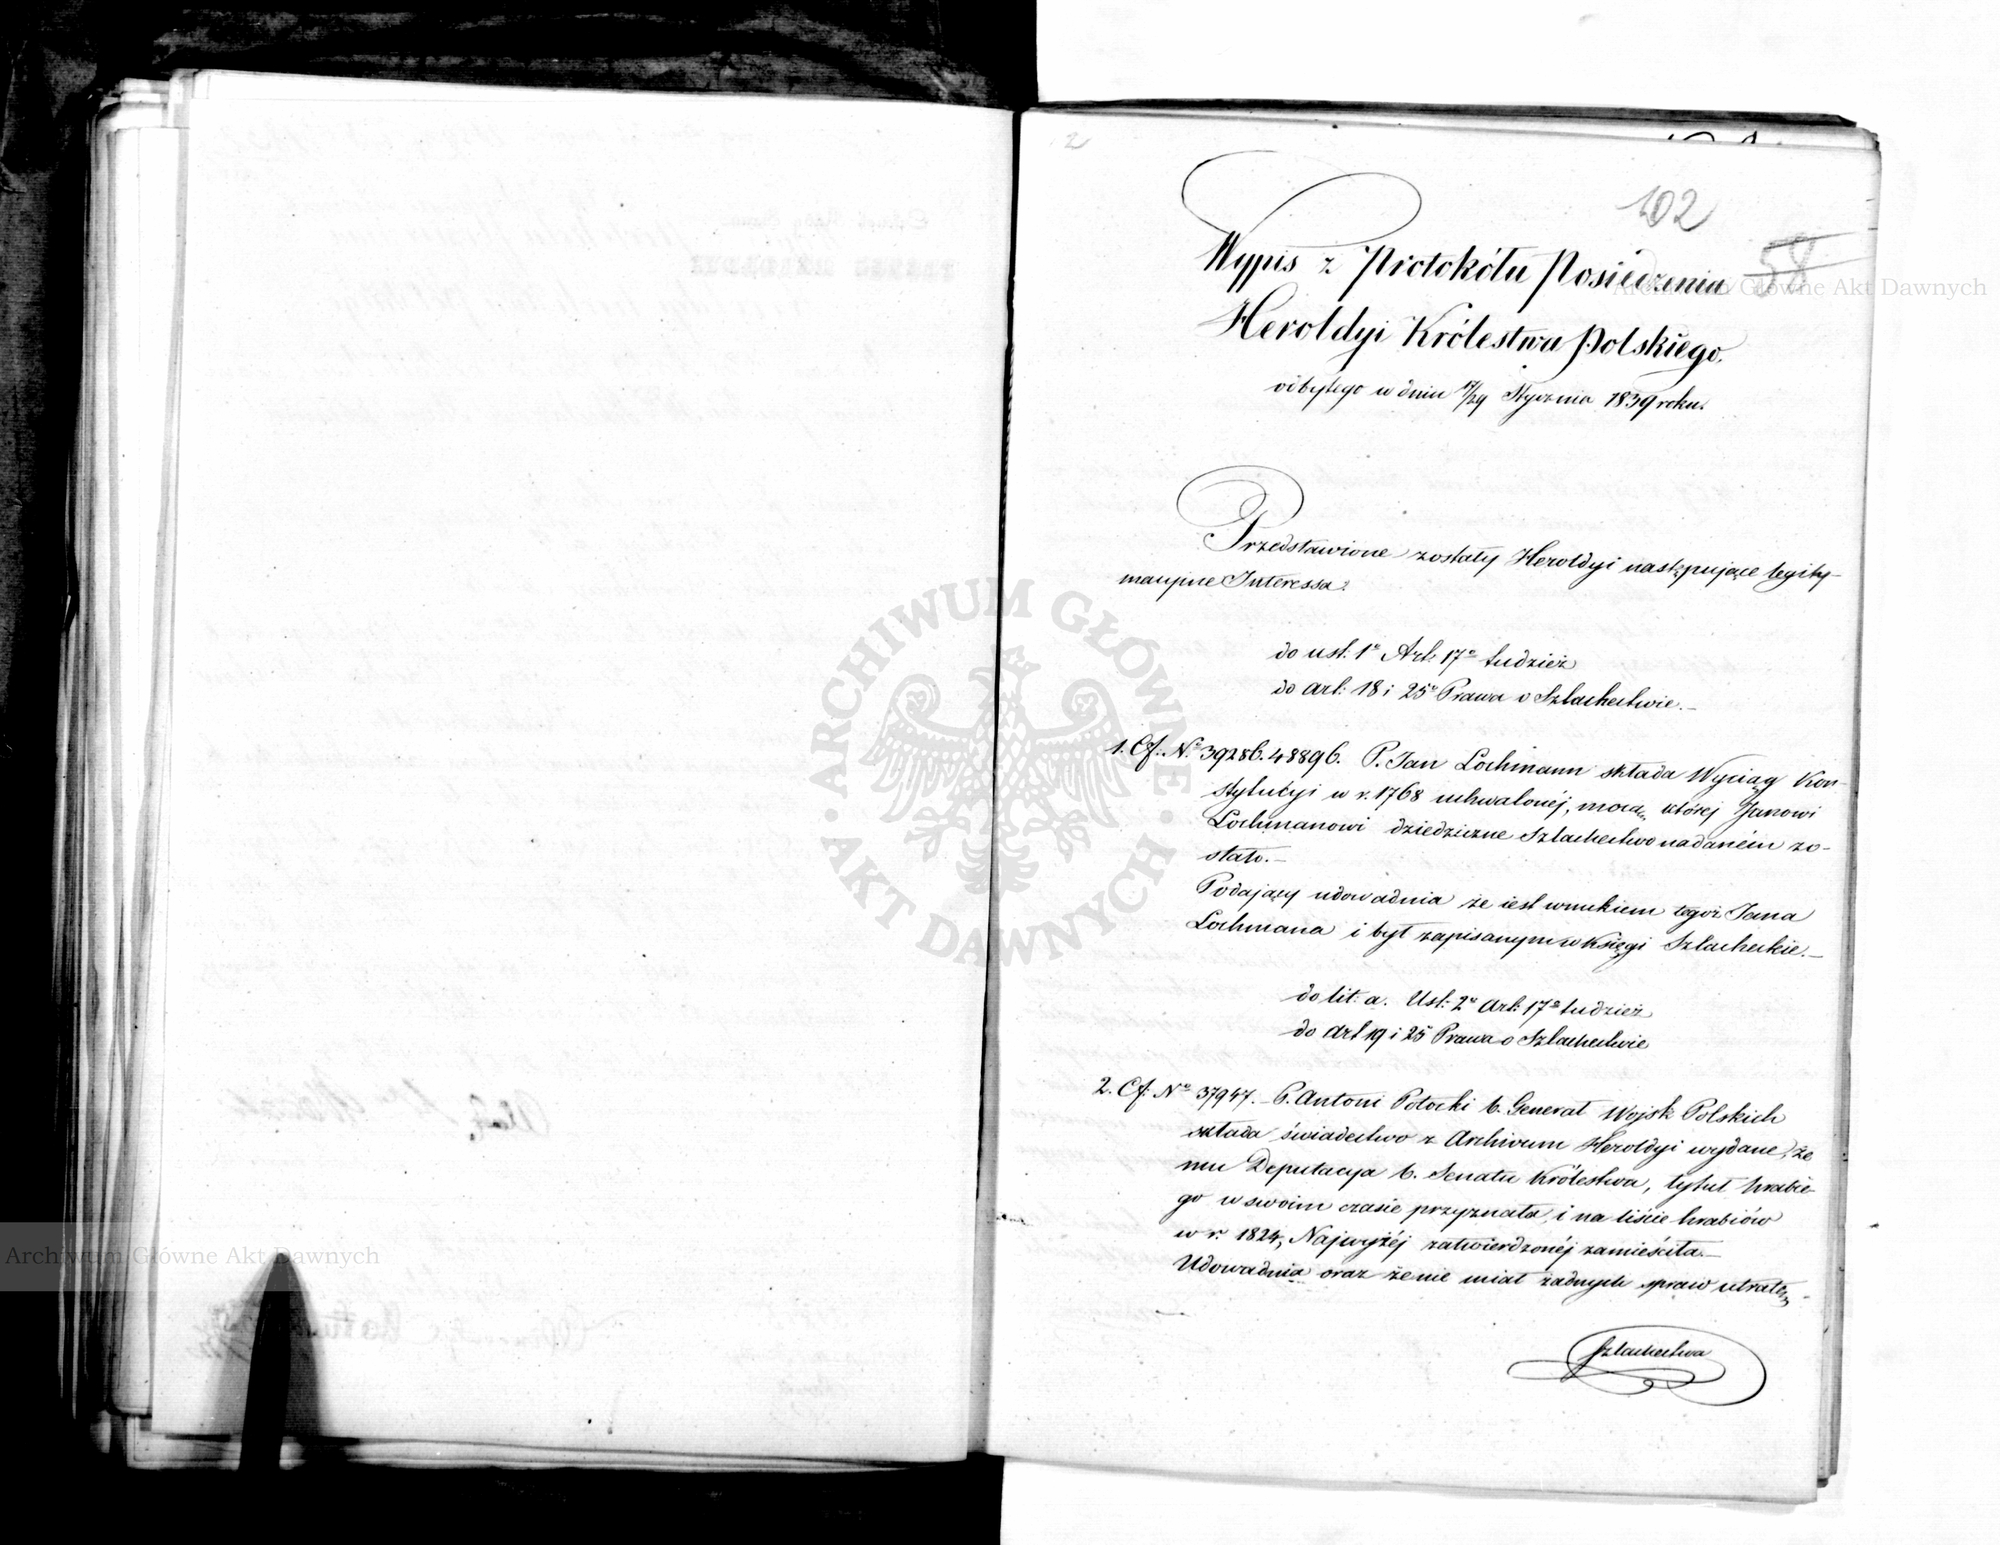 2
102
58
Wypis z Protokółu Posiedzenia
Heroldyi Królestwa Polskiego.
odbytego w dniu 17/29 Stycznia 1839 roku.
Przedstawione zostały Heroldyi następujące legity-
macyjne Interessa:
do ust: 1º Art: 17º tudzież
do art: 18 i 25º Prawa o Szlachectwie.-
1. Cf: Nº 39286. 48896. P. Jan Lochmann składa Wyciąg Kon-
stytucyi w r. 1768 uchwalonéj, mocą której Janowi
Lochmanowi dziedziczne Szlachectwo nadaném zo-
stało.-
Podający udowadnia że iest wnukiem tegoż Jana
Lochmana i był zapisanym w Księgi Szlacheckie.-
do lit: a. Ust: 2º Art: 17º tudzież
do Art 19 i 25 Prawa o Szlachectwie
2. Cf: Nº 37947.- P. Antoni Potocki b. Generał Wojsk Polskich
składa świadectwo z Archiwum Heroldyi wydane, że
mu Deputacya b. Senatu Królestwa, tytuł hrabie-
go w swoim czasie przyznała, i na liście hrabiów
w r. 1824, Najwyżéj zatwierdzonéj zamieściła.-
Udowadnia oraz że nie miał żadnych spraw utraty
Szlachectwa
ARCHIWUM GŁÓWNE
AKT DAWNYCH
Archiwum Główne Akt Dawnych
Archiwum Główne Akt Dawnych